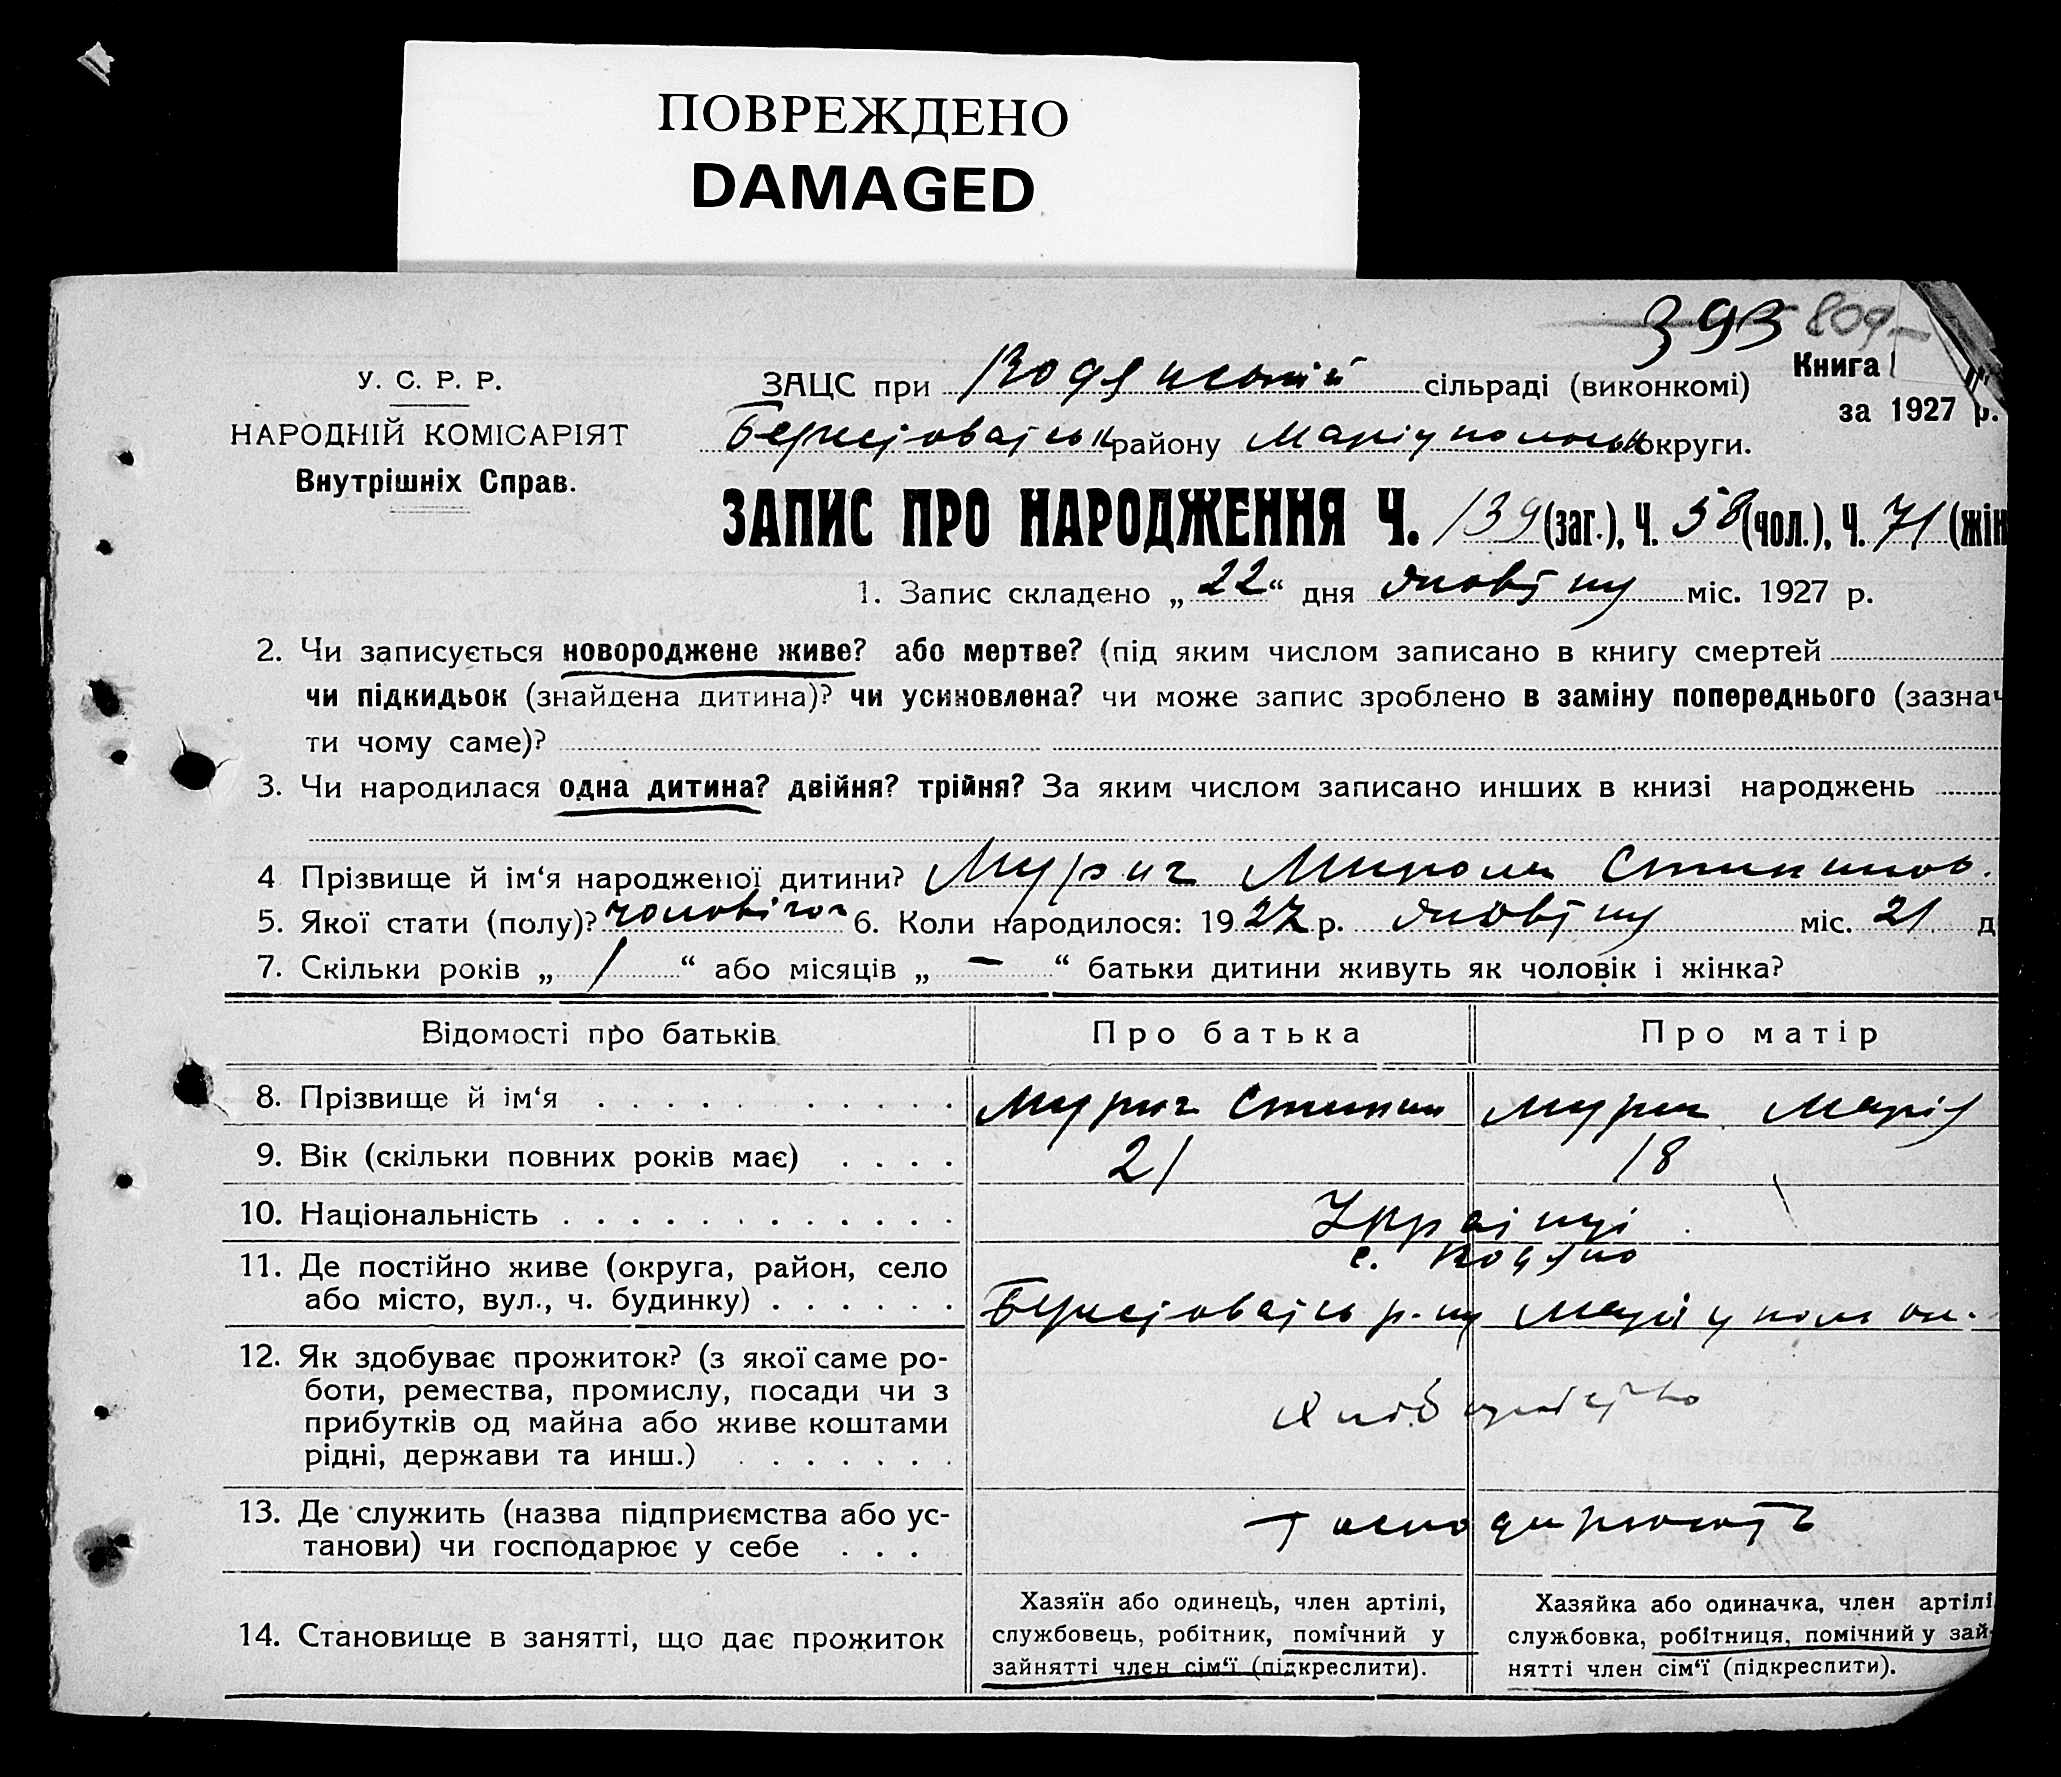 ПОВРЕЖДЕНО
DAMAGED
393 809
Книга
за 1927 р.
У. С. Р. Р.
НАРОДНІЙ КОМІСАРІЯТ
Внутрішніх Справ.
ЗАЦС при Водянській сільраді (виконкомі)
району округи.
ЗАПИС ПРО НАРОДЖЕННЯ Ч. 139 (заг.), Ч. 58 (чол.), Ч. 71 (жін
1. Запис складено „ 22 “ дня міс. 1927 р.
2. Чи записується новороджене живе? або мертве? (під яким числом записано в книгу смертей
чи підкидьок (знайдена дитина)? чи усиновлена? чи може запис зроблено в заміну попереднього (зазнач
ти чому саме)?
3. Чи народилася одна дитина? двійня? трійня? За яким числом записано инших в книзі народжень
4 Прізвище й ім‘я народженої дитини? Мурич
5. Якої стати (полу)? 6. Коли народилося: 1927 р. міс. 21 д
7. Скільки років „ 1 “ або місяців „ — “ батьки дитини живуть як чоловік і жінка?
Відомості про батьків Про батька Про матір
8. Прізвище й ім‘я . . . . . . . . . . . Мурич Марія
9. Вік (скільки повних років має) . . . . 21 18
10. Національність . . . . . . . . . . . . Українці
11. Де постійно живе (округа, район, село с. Водяно
або місто, вул., ч. будинку) . . . . . . р-ну
12. Як здобуває прожиток? (з якої саме ро-
боти, ремества, промислу, посади чи з
прибутків од майна або живе коштами
рідні, держави та инш.) . . . . . . .
13. Де служить (назва підприємства або ус-
танови) чи господарює у себе . . .
14. Становище в занятті, що дає прожиток
Хазяїн або одинець, член артілі,
службовець, робітник, помічний у
зайнятті член сім‘ї (підкреслити).
Хазяйка або одиначка, член артілі
службовка, робітниця, помічний у зай-
нятті член сім‘ї (підкреслити).